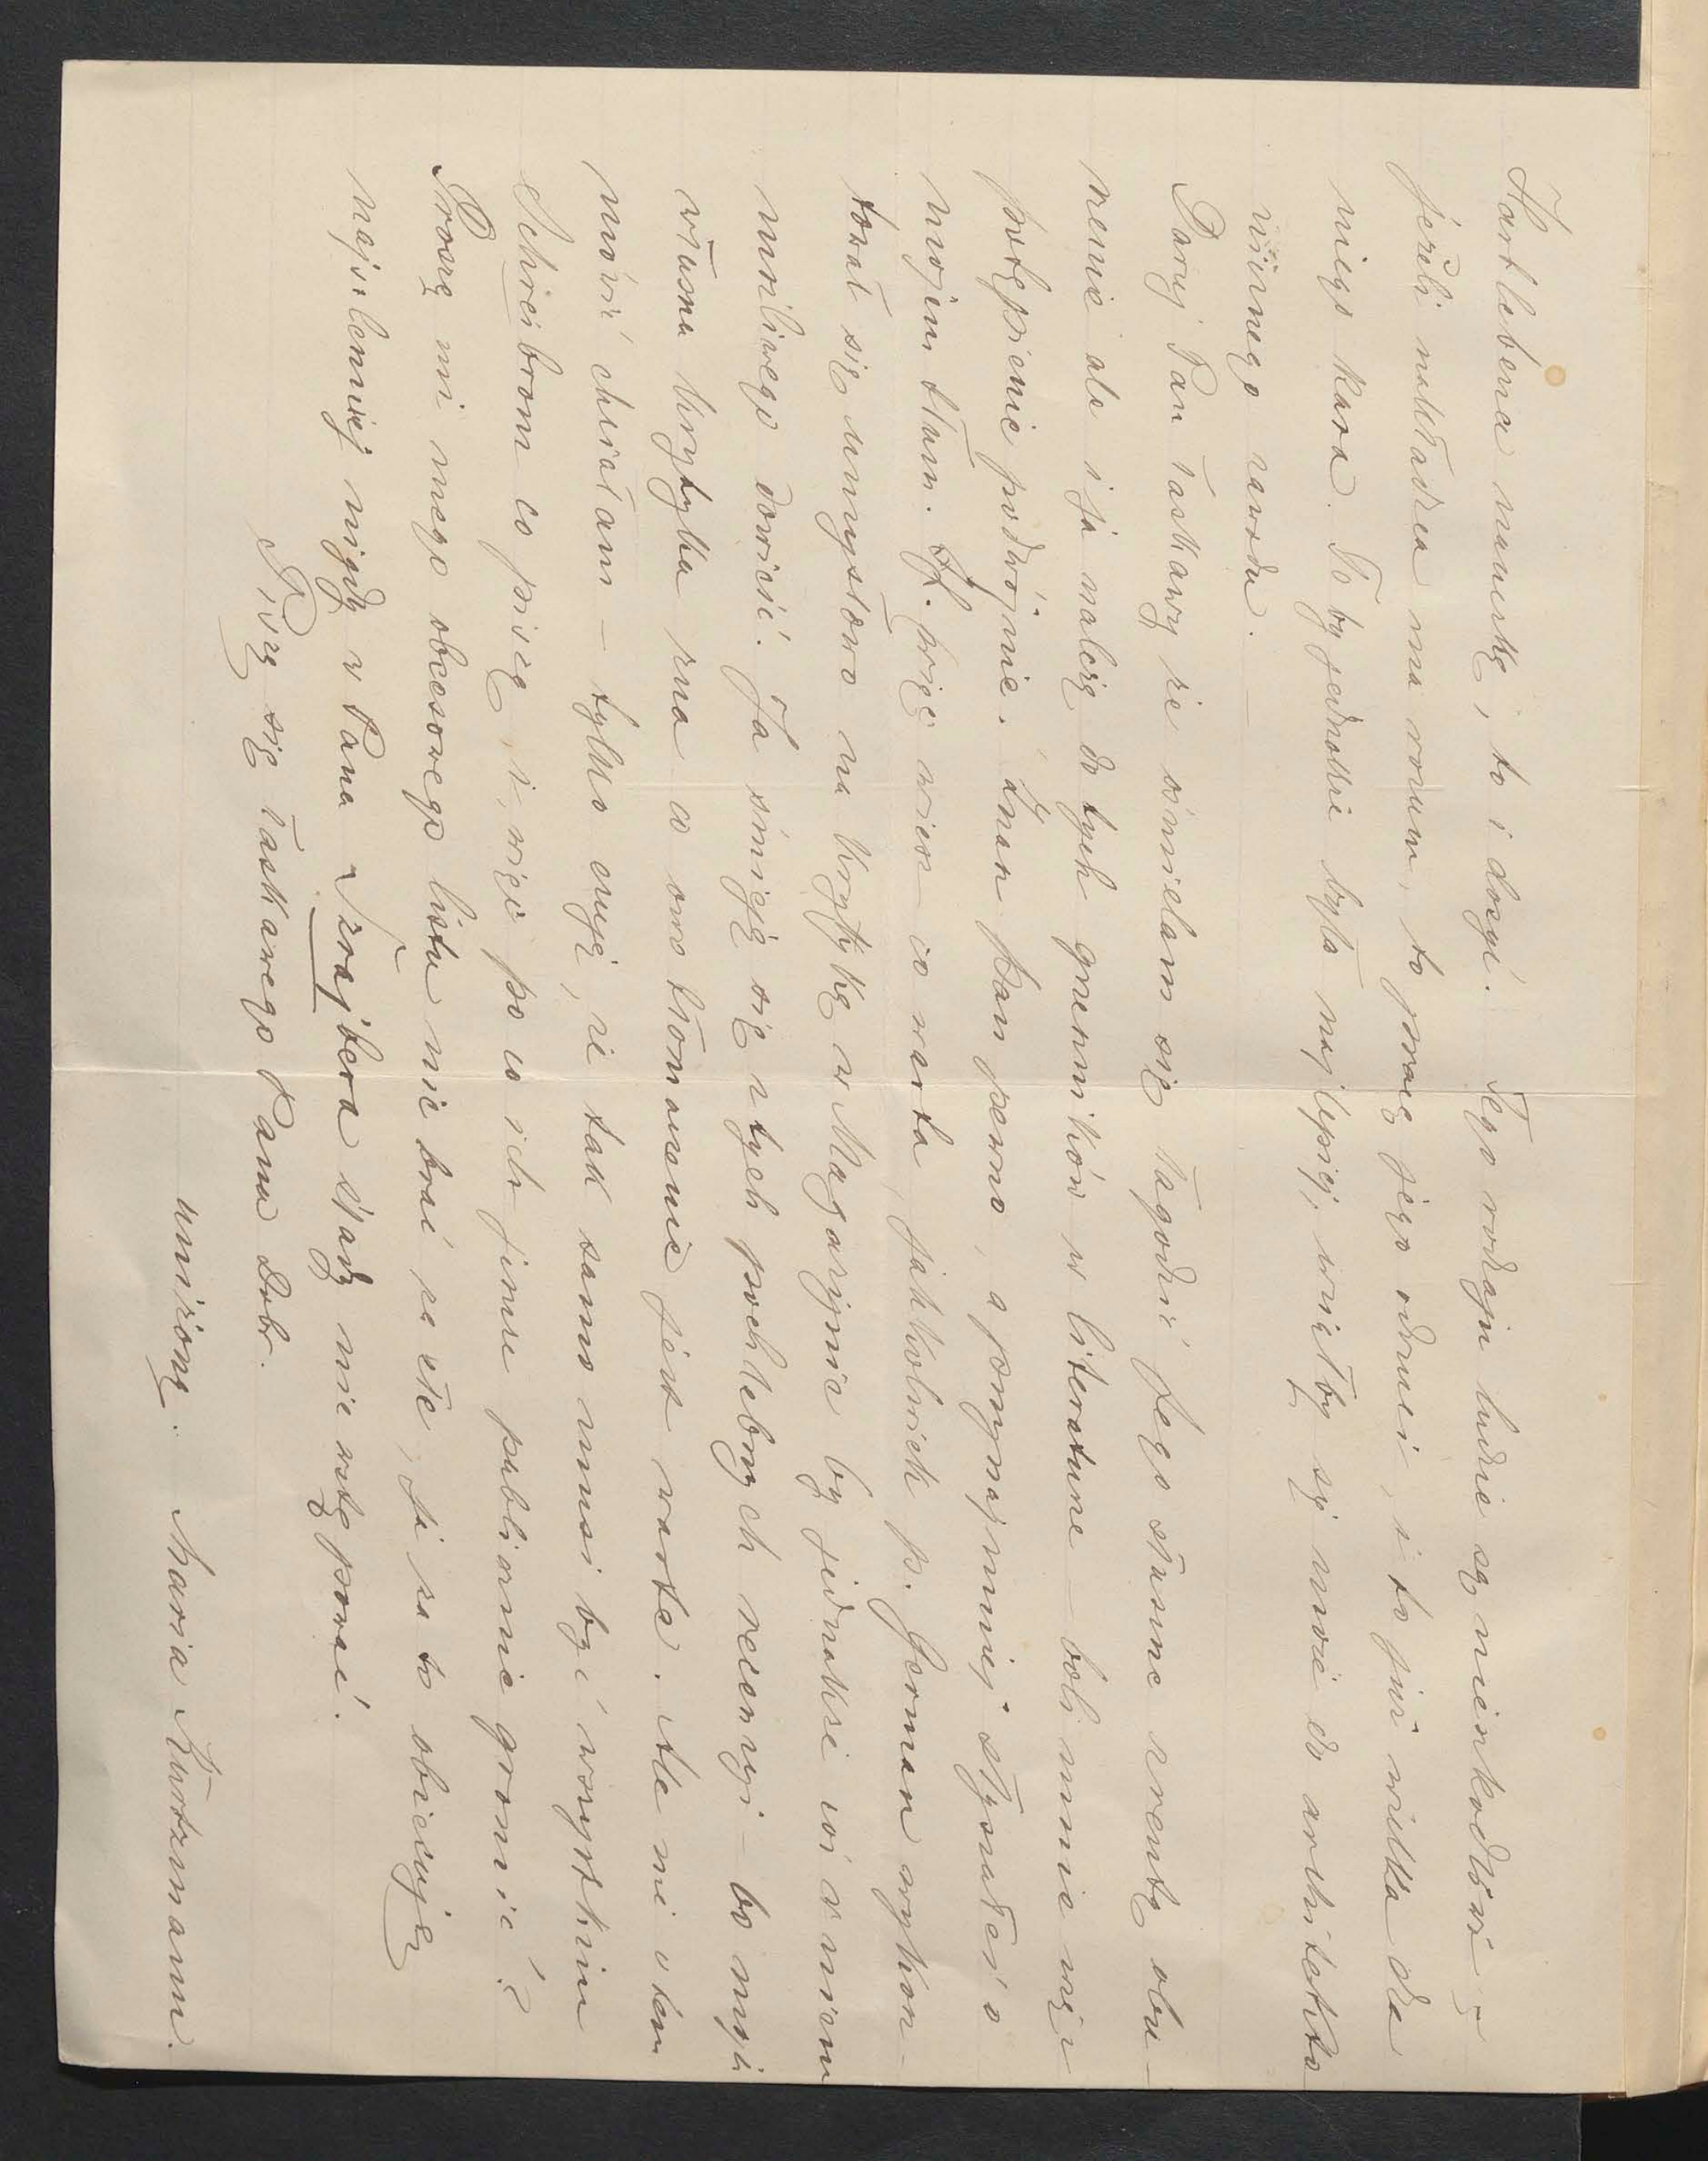 Hartlebena naukę, to i dosyć. Tego rodzaju ludzie są nieszkodliwi –
jeżeli nakładca ma rozum, to pracę jego odrzuci, i to już wielka dla
niego kara. To by jednakże było najlepiej, wziąłby się może do architekto
nicznego zawodu. –
Daruj Pan łaskawy że ośmielam się łagodzić Jego słuszne zresztą obu-
rzenie ale i ja należę do tych grzeszników w literaturze – boli mnie więc
potępienie podwójnie. Znasz Pan pewno, a przynajmniej słyszałeś o
mojem tłum. H. przez wieś co warta, jakkolwiek p. German wykon-
tował się umyślnie na krytykę w Magazynie by jednakże coś o niem
wnilivego donieść. Ja śmieję się z tych pochlebnych recenzyi – bo moja
własna krytyka zna co ono tłomaczenie jest warte. Ale nie o tem
mówić chciałam – tylko czuję, że tak samo musi być wszystkim
Schreibrom co piszą, i więc po co ich jeszcze publicznie gromić?
Proszę mi mego obcesowego listu nie brać za złe, ja za to obiecuję
najsolenniej nigdy w Pana Szrajbera ślady nie wstępować.
Piszę się łaskawego Pana Dobr.
uniżoną. Maria Kurtzmann.